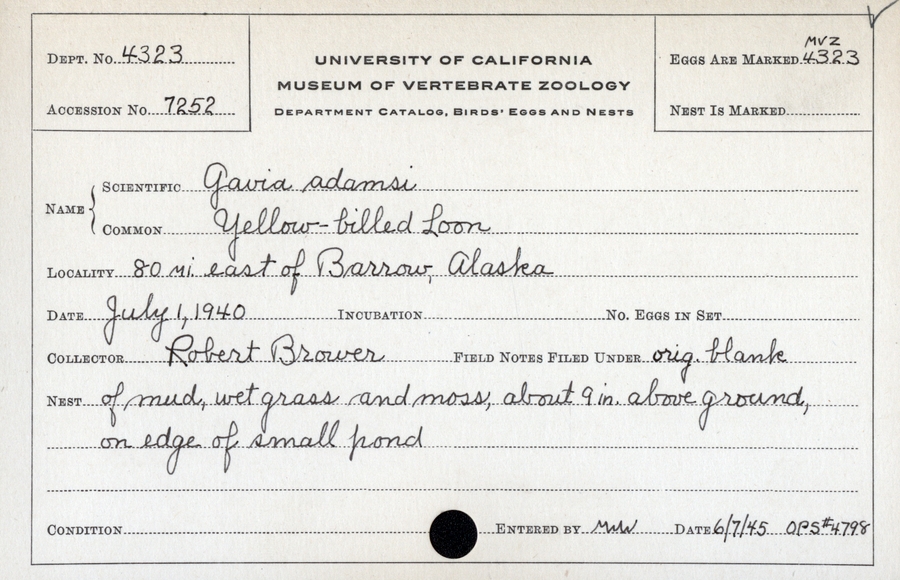 Dept. No. 4323
Accession No. 7252
UNIVERSITY OF CALIFORNIA
MUSEUM OF VERTEBRATE ZOOLOGY
Department Catalog, Birds' Eggs and Nests
MVZ
Eggs Are Marked 4323
Nest Is Marked
Name
Scientific Gavia adamsi
Common Yellow-billed Loon
Locality 80 mi. east of Barrow, Alaska
Date July 1, 1940 Incubation No. Eggs in Set
Collector Robert Brower Field Notes Filed Under orig. blank
Nest of mud, wet grass and moss, about 9 in. above ground,
on edge of small pond
Condition Entered by Date 6/7/45 OPS#4798